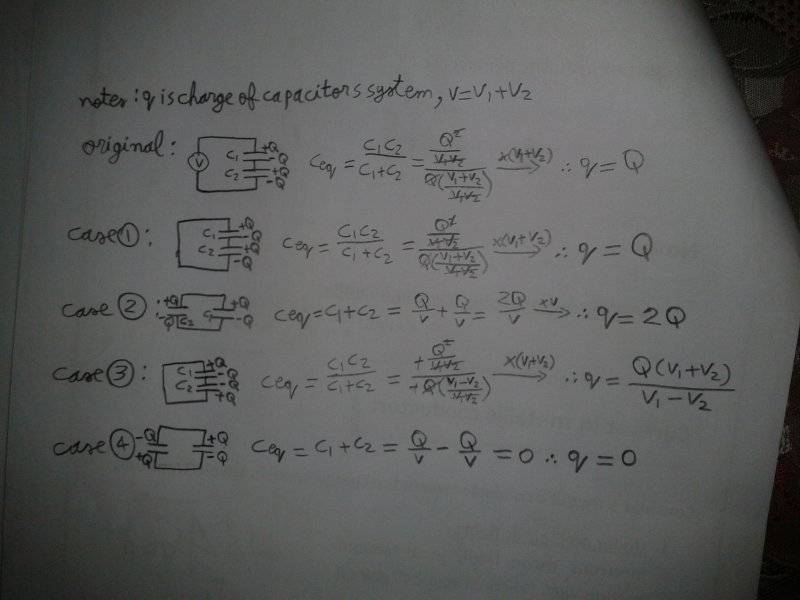 notes: q is charge of capacitors system, V=V₁+V₂
original: V C₁ C₂ +Q -Q +Q -Q Ceq = C₁C₂/(C₁+C₂) = (Q²/(V₁V₂))/(Q((V₁+V₂)/(V₁V₂))) ×(V₁+V₂)→ ∴ q = Q
case ①: C₁ C₂ +Q -Q +Q -Q Ceq = C₁C₂/(C₁+C₂) = (Q²/(V₁V₂))/(Q((V₁+V₂)/(V₁V₂))) ×(V₁+V₂)→ ∴ q = Q
case ②: +Q -Q C₂ C₁ +Q -Q Ceq = C₁+C₂ = Q/V + Q/V = 2Q/V ×V→ ∴ q = 2Q
case ③: C₁ C₂ +Q -Q -Q +Q Ceq = C₁C₂/(C₁+C₂) = (+Q²/(V₁V₂))/(+Q((V₁-V₂)/(V₁V₂))) ×(V₁+V₂)→ ∴ q = Q(V₁+V₂)/(V₁-V₂)
case ④ -Q +Q +Q -Q Ceq = C₁+C₂ = Q/V - Q/V = 0 ∴ q = 0